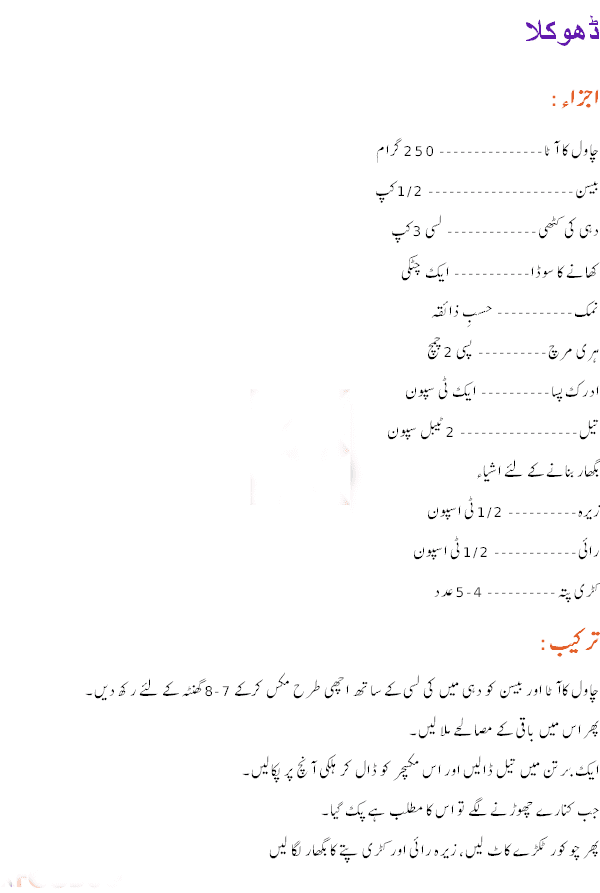 ڈھوکلا
اجزاء :
چاول کا آٹا--------------- 250 گرام
بیسن--------------------- 1/2 کپ
دہی کی کٹھی------------- لسی 3 کپ
کھانے کا سوڈا----------- ایک چٹکی
نمک----------- حسبِ ذائقہ
ہری مرچ---------- پسی 2 چمچ
ادرک پسا---------- ایک ٹی سپون
تیل----------------- 2 ٹیبل سپون
بگھار بنانے کے لئے اشیاء
زیرہ---------- 1/2 ٹی اسپون
رائی------------ 1/2 ٹی اسپون
کڑی پتہ---------- 4-5 عدد
ترکیب :
چاول کا آٹا اور بیسن کو دہی میں کی لسی کے ساتھ اچھی طرح مکس کرکے 7-8 گھنٹہ کے لئے رکھ دیں۔
پھر اس میں باقی کے مصالحے ملا لیں۔
ایک برتن میں تیل ڈالیں اور اس مکیچر کو ڈال کر ہلکی آنچ پر پکالیں۔
جب کنارے چھوڑنے لگے تو اس کا مطلب ہے پک گیا۔
پھر چوکور ٹکڑے کاٹ لیں، زیرہ رائی اور کڑی پتے کا بگھار لگا لیں